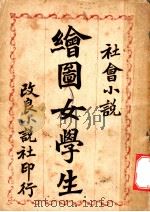 社會小説
繪圖女學生
改良小說社印行